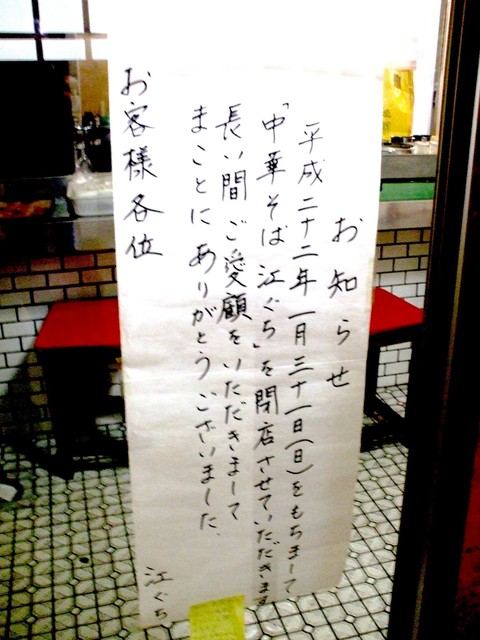 お知らせ
平成二十二年一月三十一日(日)をもちまして
「中華そば江ぐち」を閉店させていただきます
長い間ご愛顧をいただきまして
まことにありがとうございました。
お客様各位
江ぐち